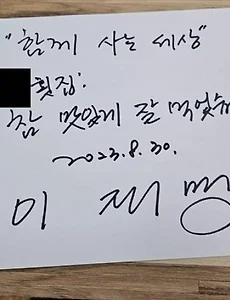 "함께 사는 세상"
횟집:
참 맛있게 잘 먹었습
2023.8.30.
이 재 명